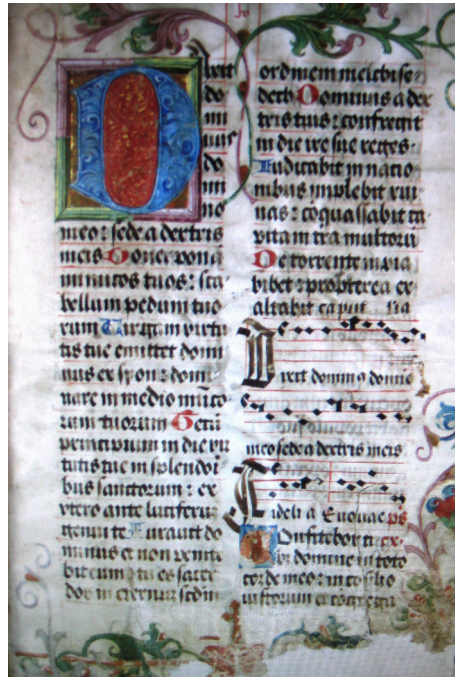 Dixit
do
mi
nus
do
mi
no
meo: sede a dextris
meis Donec pona
inimicos tuos: sca
bellum pedum tuo
rum Uirgam virtu
tis tue emittet domi
nus ex syon: domi
nare in medio inimico
rum tuorum Tecū
principium in die vir
tutis tue in splendori
bus sanctorum: ex
vtero ante luciferū
genui te Iurauit do
minus et non penite
bit eum tu es sacer
dos in eternum scdm
ordinem melchise
dech Dominus a dex
tris tuis: confregit
in die ire sue reges.
Iudicabit in natio
nibus implebit rui
nas: coquassabit ca
pita in tra multorū
De torrente in via
bibet: propterea ex
altabit caput
Dixit domin⁹ domino
meo sede a dextris meis
Fideli a Euouae ps
Onfitebor ti ex.
bi domine in toto
corde meo: in cōsilio
iustorum et cōgrega